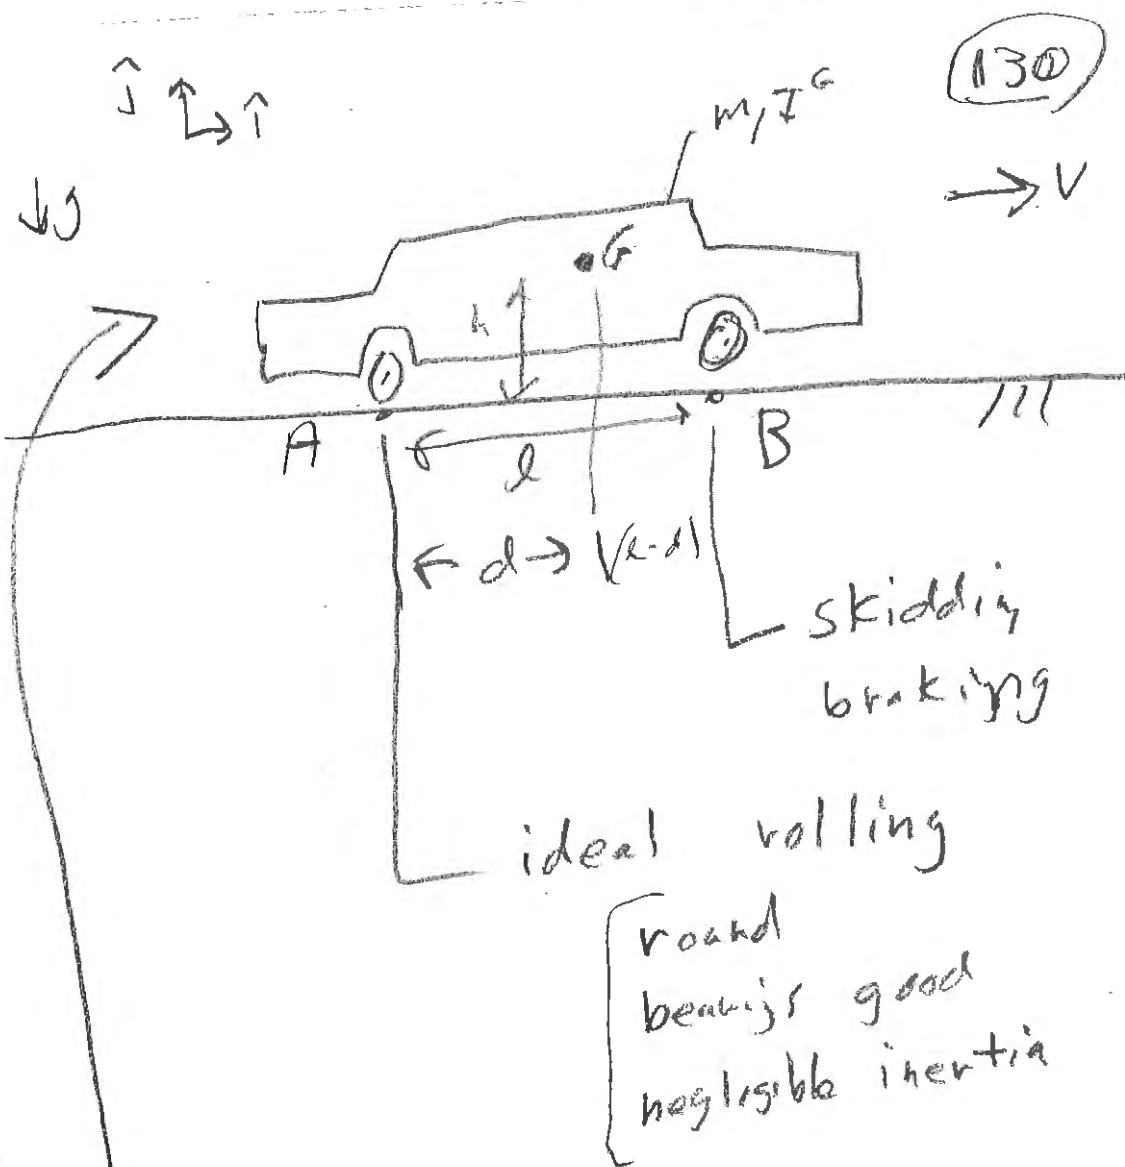 130
ĵ
î
m, I^G
↓g
→ V
G
h
A
B
l
← d → (l-d)
skiddin
braking
ideal rolling
round
bearings good
negligible inertia